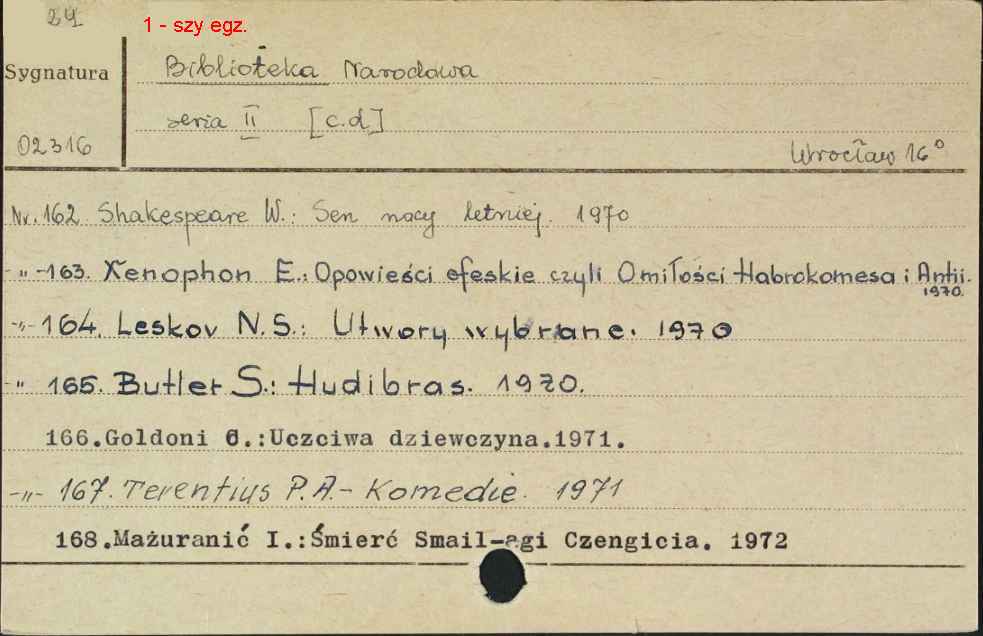 24
1 - szy egz.
Sygnatura
Biblioteka Narodowa
seria II [c.d]
02316
Wrocław 16°
Nr. 162. Shakespeare W.: Sen nocy letniej. 1970
-"- 163. Xenophon E.: Opowieści efeskie czyli O miłości Habrokomesa i Antii.
1970.
-"- 164. Leskov N.S.: Utwory wybrane. 1970
-" 165. Butler S.: Hudibras. 1970.
166.Goldoni C.:Uczciwa dziewczyna.1971.
-"- 167. Terentius P.A.- Komedie. 1971
168.Mażuranić I.:Śmierć Smail-agi Czengicia. 1972